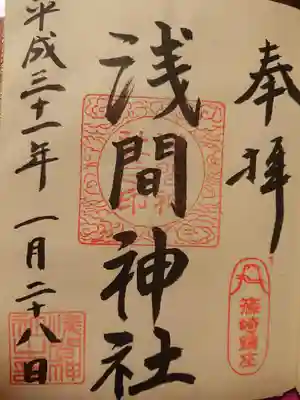 奉拝
浅間神社
平成三十一年一月二十八日
篠崎鎮座